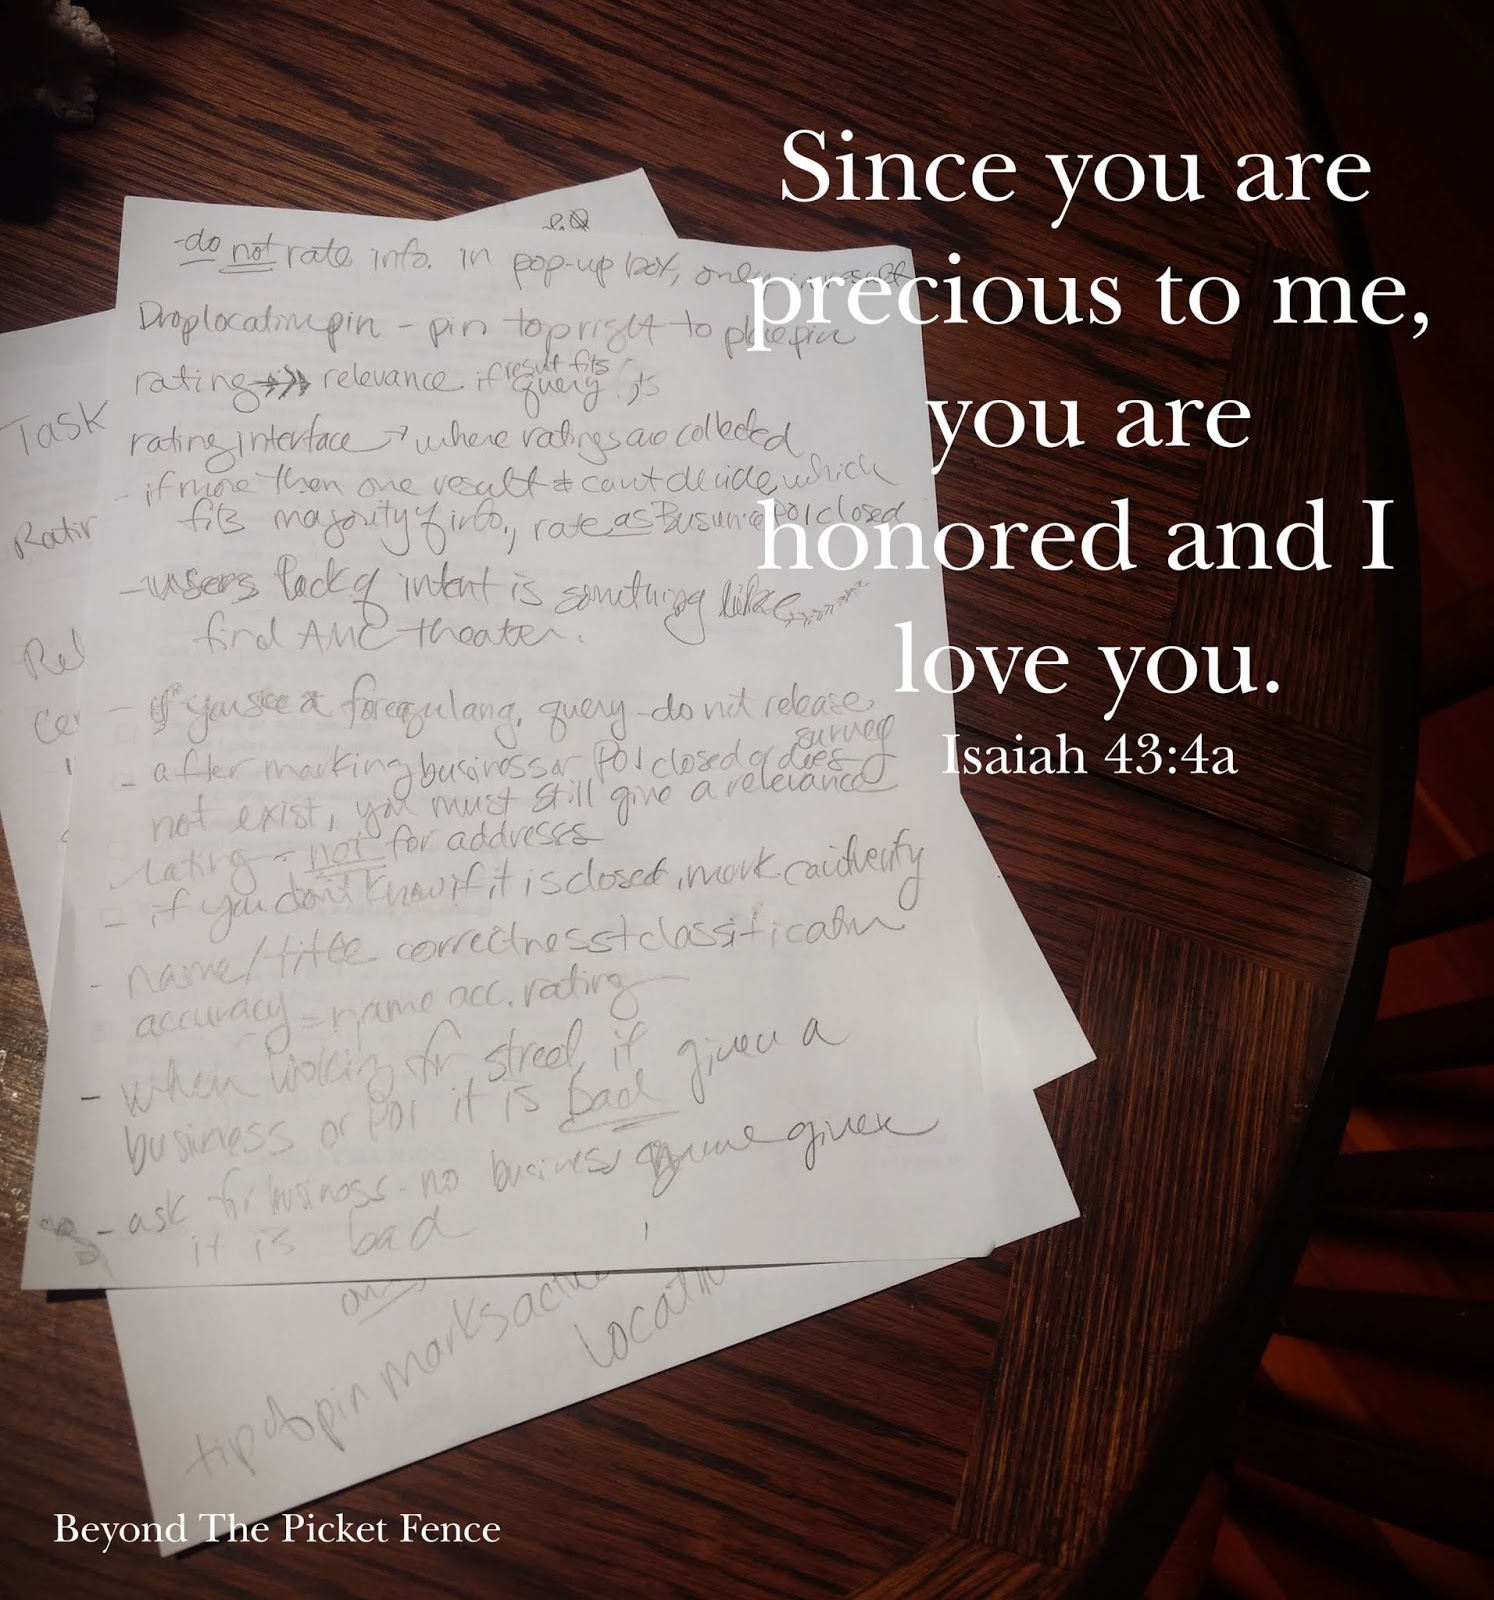 Since you are
precious to me,
you are
honored and I
love you.
Isaiah 43:4a
- do not rate info. in pop-up box, only in result
Drop location pin - pin top right to place pin
rating relevance if result fits query
rating interface → where ratings are collected
- if more then one result & can't decide which
fits majority of info, rate as Business POI closed
- users lack of intent is something like
find AMC theater.
- if you see a foreign lang. query - do not release
survey
- after marking business or POI closed or does
not exist, you must still give a relevance
rating - not for addresses
- if you don't know if it is closed, mark can't verify
- name/title correctness + classification
accuracy = name acc. rating
- when looking for street, if given a
business or POI it is bad
- ask for business - no business name given
it is bad
Task
Ratin
Rel
tip of pin marks
location
Beyond The Picket Fence